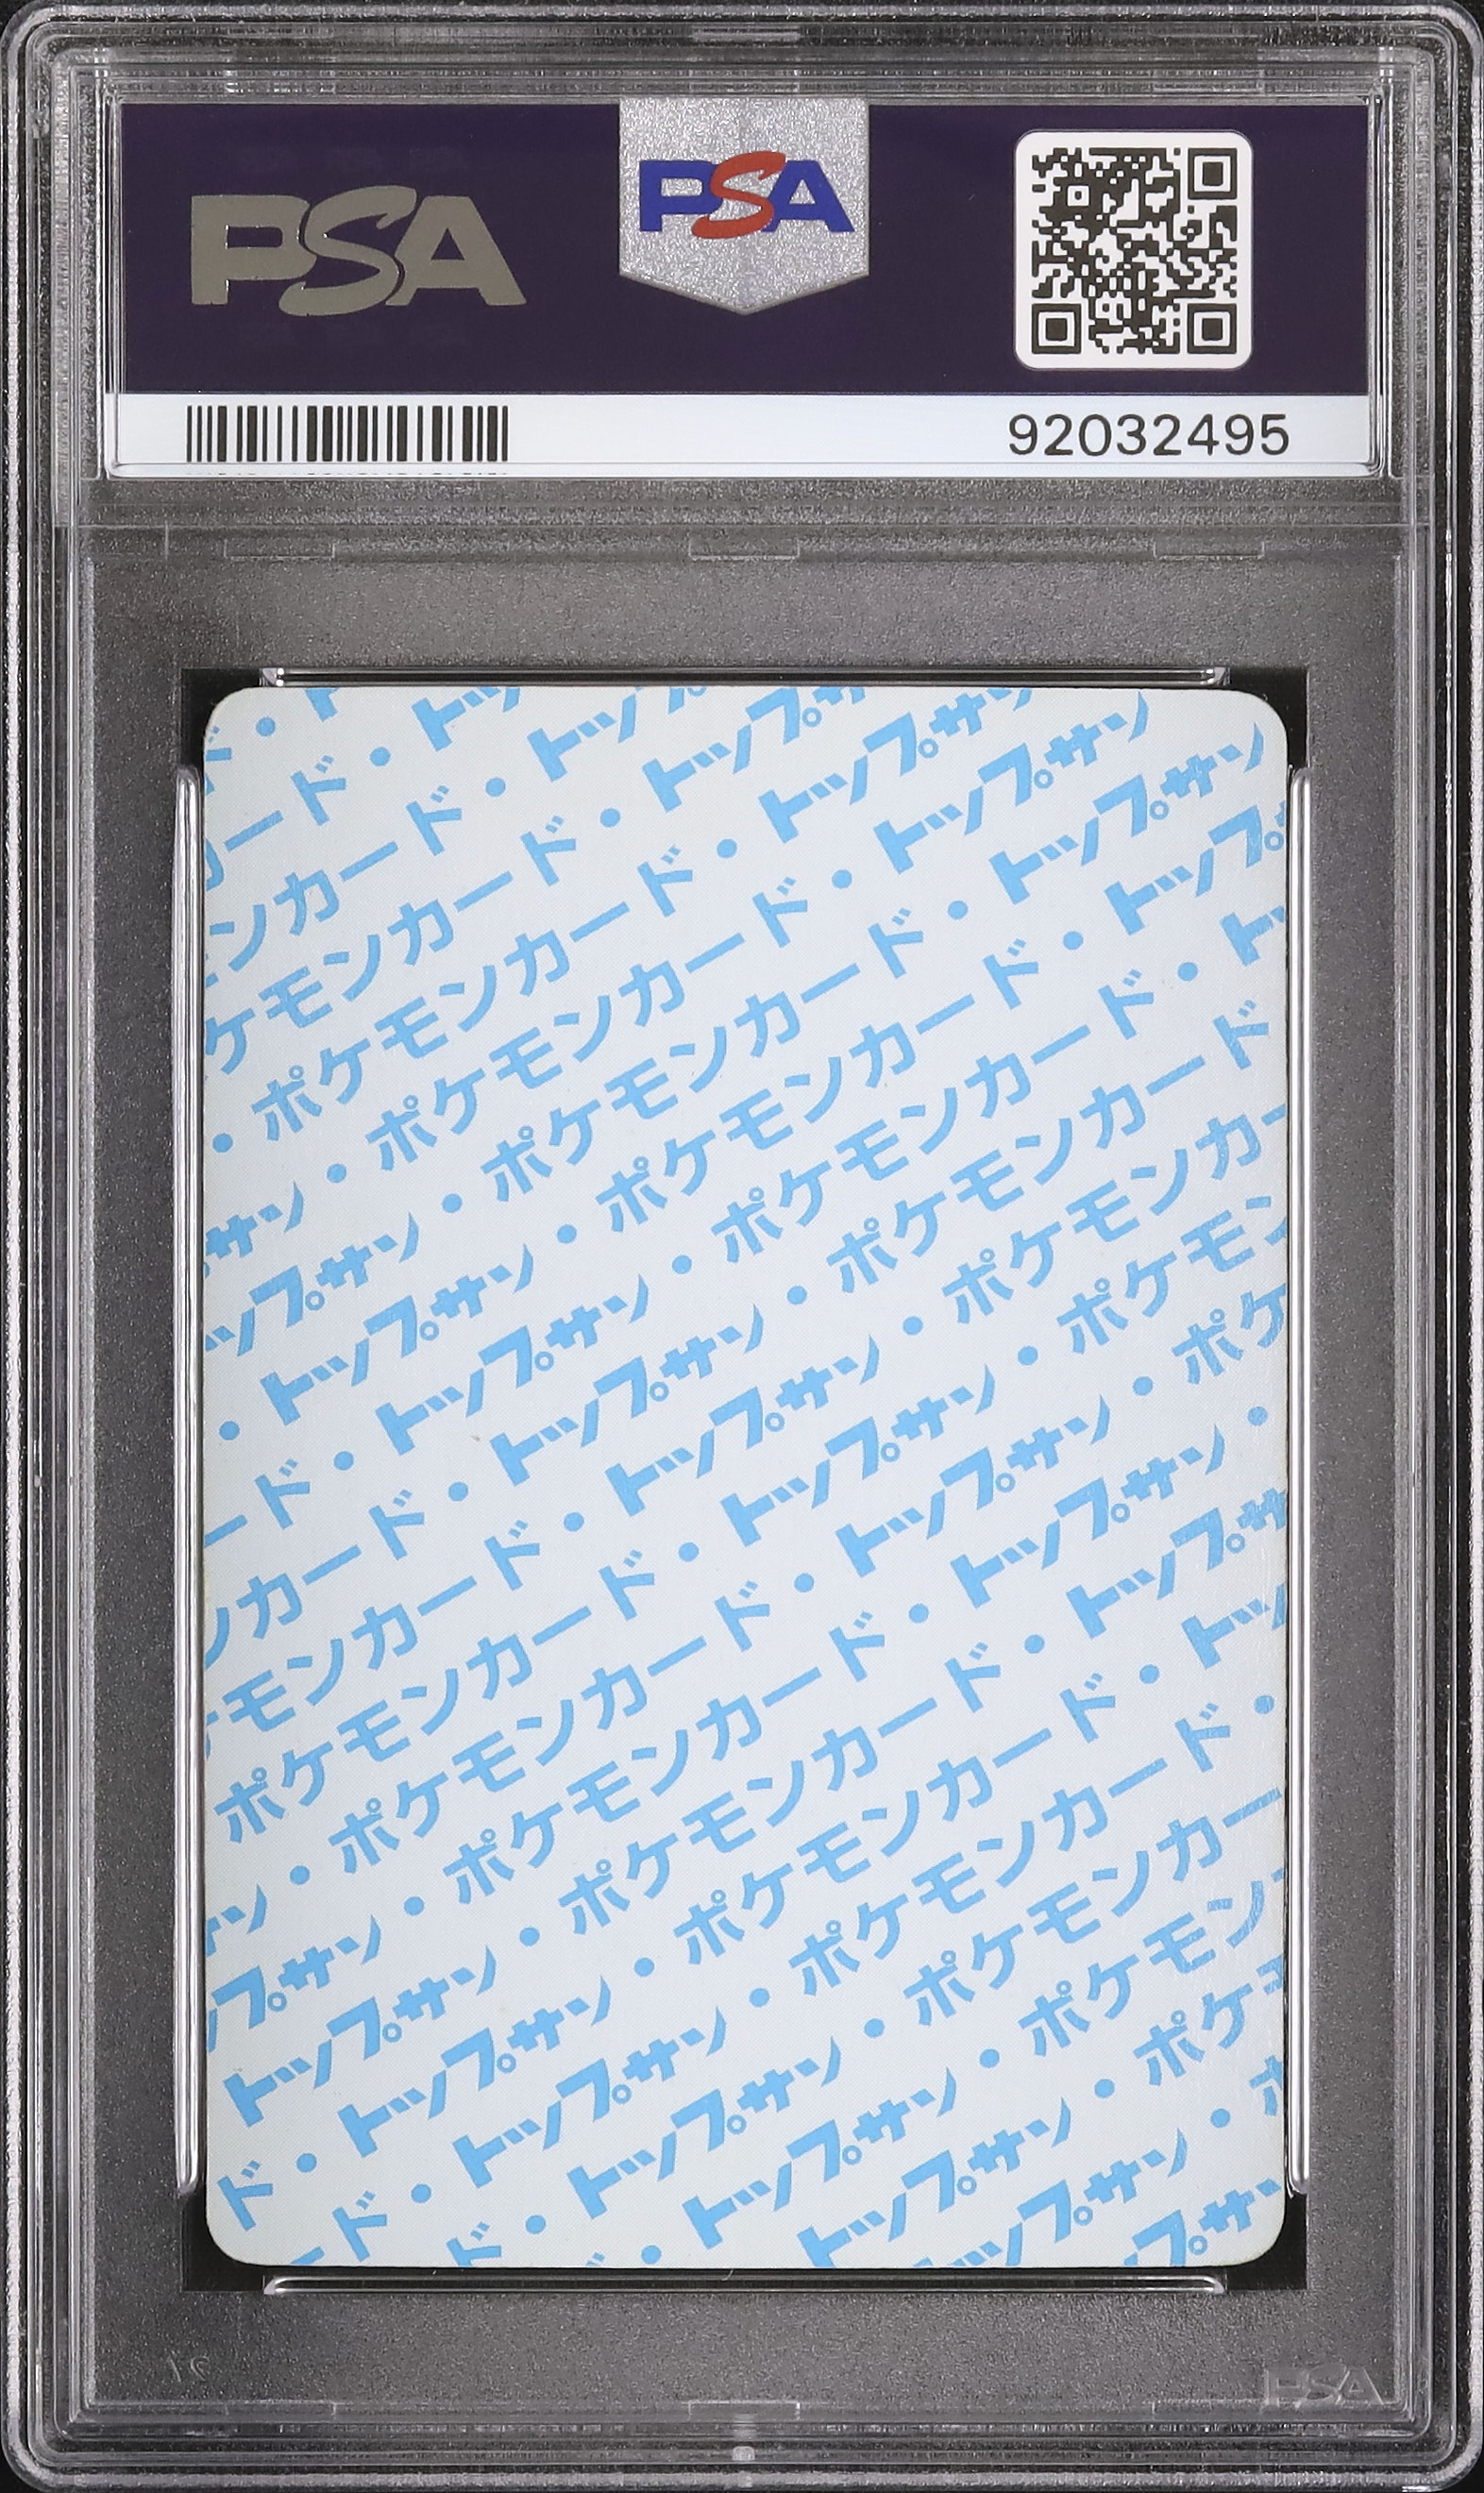 PSA
PSA
92032495
ド・ト
カード・トッ
ンカード・トップ
ケモンカード・トップサ
・ポケモンカード・トップサン
サン・ポケモンカード・トップサン
ップサン・ポケモンカード・トップサン
・トップサン・ポケモンカード・トップ
ード・トップサン・ポケモンカード・ト
ンカード・トップサン・ポケモンカード
モンカード・トップサン・ポケモンカー
ポケモンカード・トップサン・ポケモン
サン・ポケモンカード・トップサン・ポケ
プサン・ポケモンカード・トップサン・
トップサン・ポケモンカード・トップサ
ド・トップサン・ポケモンカード・トッ
ード・トップサン・ポケモンカード・
ド・トップサン・ポケモンカー
・トップサン・ポケモン
トップサン・ポケ
ップサン・
プサ
PSA